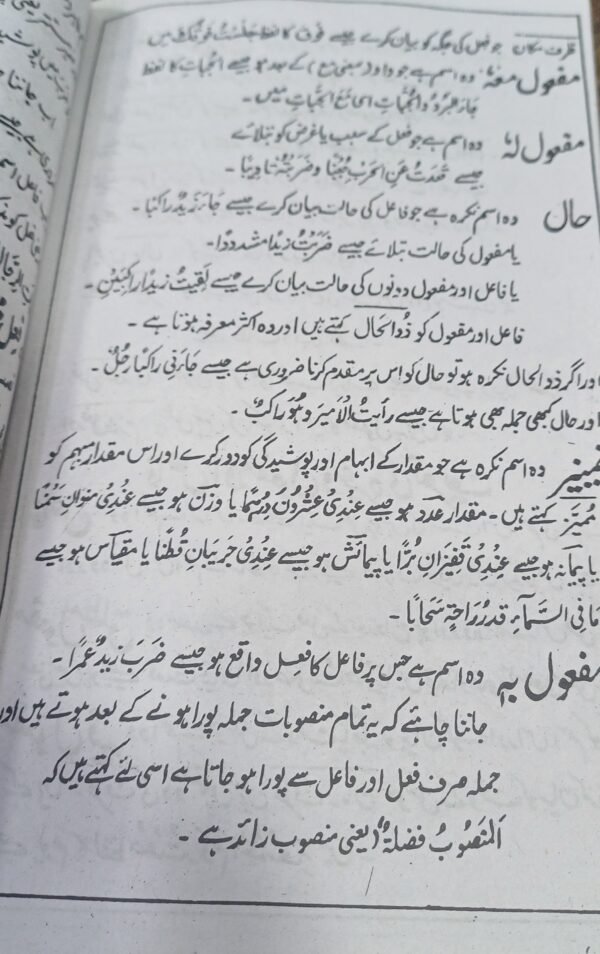 ظرف مکان جو فعل کی جگہ کو بیان کرے جیسے فوق کا لفظ جَلَسْتُ فَوْقَكَ میں
مفعول معہٗ وہ اسم ہے جو واو (بمعنی مع) کے بعد ہو جیسے الجبّات کا لفظ
جَاءَ الْبَرْدُ وَالْجُبَّاتِ ای مَعَ الْجُبَّاتِ میں۔
مفعول لہٗ وہ اسم ہے جو فعل کے سبب یا غرض کو بتلائے
جیسے قَعَدْتُ عَنِ الْحَرْبِ جُبْنًا وضَرَبْتُهٗ تادیبًا۔
حال وہ اسم نکرہ ہے جو فاعل کی حالت بیان کرے جیسے جَاءَ زَیْدٌ رَاكِبًا۔
یا مفعول کی حالت بتلائے جیسے ضَرَبْتُ زیدًا مشدودًا۔
یا فاعل اور مفعول دونوں کی حالت بیان کرے جیسے لَقِیْتُ زیدًا رَاكِبَیْنِ۔
فاعل اور مفعول کو ذُوالحَال کہتے ہیں اور وہ اکثر معرفہ ہوتا ہے۔
اور اگر ذوالحال نکرہ ہو تو حال کو اس پر مقدم کرنا ضروری ہے جیسے جَاءَنِی رَاكبًا رَجُلٌ۔
اور حال کبھی جملہ بھی ہوتا ہے جیسے رأیتُ الْاَمِیْرَ وَهُوَ رَاكبٌ۔
تمییز وہ اسم نکرہ ہے جو مقدار کے ابہام اور پوشیدگی کو دور کرے اور اس مقدار مبہم کو
مُمَیَّز کہتے ہیں۔ مقدار عدد ہو جیسے عِنْدِیْ عِشْرُوْنَ دِرْهَمًا یا وزن ہو جیسے عِنْدِیْ مَنَوَانِ سَمْنًا
یا پیمانہ ہو جیسے عِنْدِیْ قَفِیْزَانِ بُرًّا یا پیمائش ہو جیسے عِنْدِیْ جَرِیْبَانِ قُطْنًا یا مقیاس ہو جیسے
مَا فِی السَّمَآءِ قَدْرُ رَاحَةٍ سَحَابًا۔
مفعول بہٖ وہ اسم ہے جس پر فاعل کا فعل واقع ہو جیسے ضَرَبَ زیدٌ عَمْرًا۔
جاننا چاہئے کہ یہ تمام منصوبات جملہ پورا ہونے کے بعد ہوتے ہیں اور
جملہ صرف فعل اور فاعل سے پورا ہو جاتا ہے اسی لئے کہتے ہیں کہ
اَلْمَنْصُوْبُ فضلةٌ (یعنی منصوب زائد ہے۔